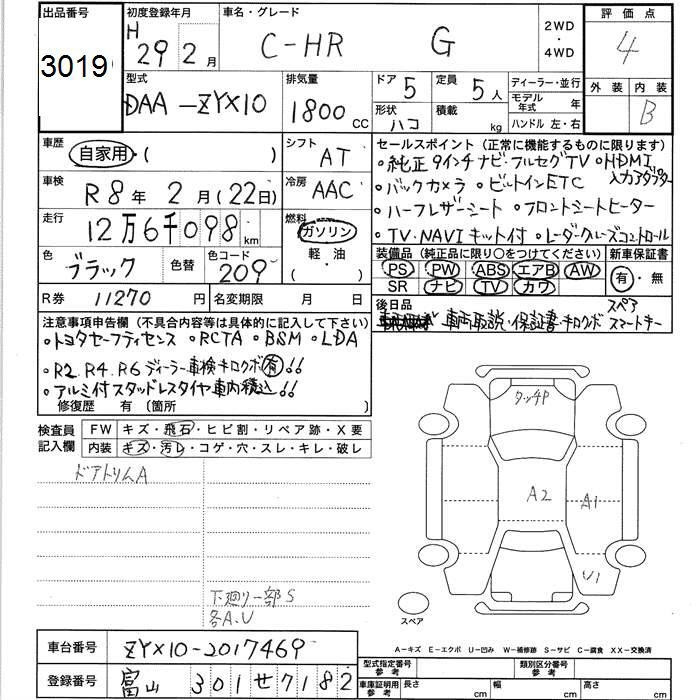 出品番号 3019
初度登録年月 H 29年 2月
車名・グレード C-HR G
2WD・4WD
評価点 4
外装 内装 B
型式 DAA-ZYX10
排気量 1800 CC
ドア 5 定員 5人
形状 ハコ 積載 kg
ディーラー・並行
モデル年式 年
ハンドル 左・右
車歴 自家用・( )
シフト AT
車検 R8年 2月(22日)
冷房 AAC
走行 12万6千098 km
燃料 ガソリン 軽油 ( ・ )
色 ブラック 色替 色コード 209
R券 11270円 名変期限 月 日
セールスポイント(正常に機能するものに限ります)
・純正9インチナビ・フルセグTV・HDMI入力アダプター
・バックカメラ・ビルトインETC
・ハーフレザーシート・フロントシートヒーター
・TV・NAVIキット付・レーダークルーズコントロール
装備品(純正品に限り○をつけてください) 新車保証書
PS PW ABS エアB AW 有・無
SR ナビ TV カワ
後日品 車両取説・保証書・キロクボ スペアスマートキー
注意事項申告欄(不具合内容等は具体的に記入して下さい)
・トヨタセーフティセンス・RCTA・BSM・LDA
・R2.R4.R6ディーラー車検キロクボ有!!
・アルミ付スタッドレスタイヤ車内積込!!
修復歴 有(箇所 )
検査員記入欄
FW キズ・飛石・ヒビ割・リペア跡・X要
内装 キズ・汚レ・コゲ・穴・スレ・キレ・破レ
ドアトリムA
下廻り一部S
各A.U
タッチP
A2
A1
U1
スペア
A-キズ E-エクボ U-凹み W-補修跡 S-サビ C-腐食 XX-交換済
車台番号 ZYX10-2017469
登録番号 富山 301せ7182
型式指定番号 参考 類別区分番号 参考
車庫証明用 参考 長さ cm 幅 cm 高さ cm